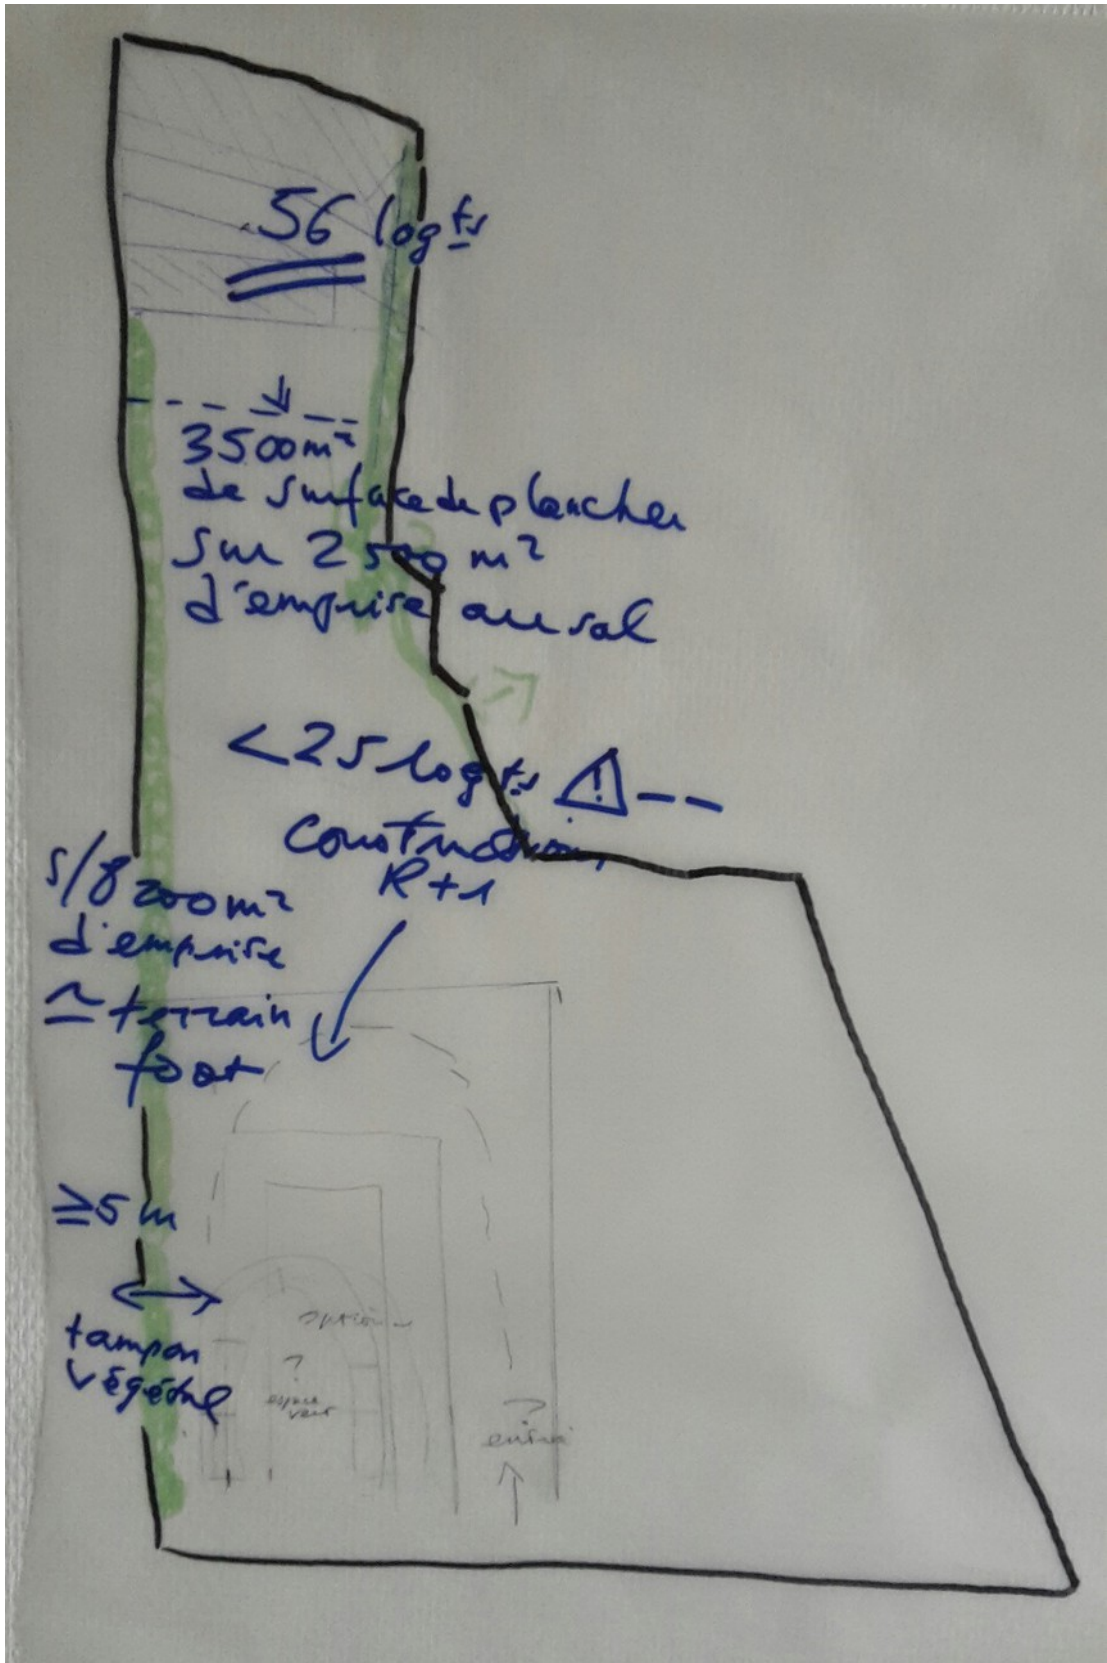 56 logts
3500m²
de surface de plancher
sur 2500 m²
d'emprise au sol
<25 logts ⚠ --
Constructions
R+1
s/8200m²
d'emprise
≃ terrain
foot
≥5m
tampon
végétal
option
?
espace
vert
?